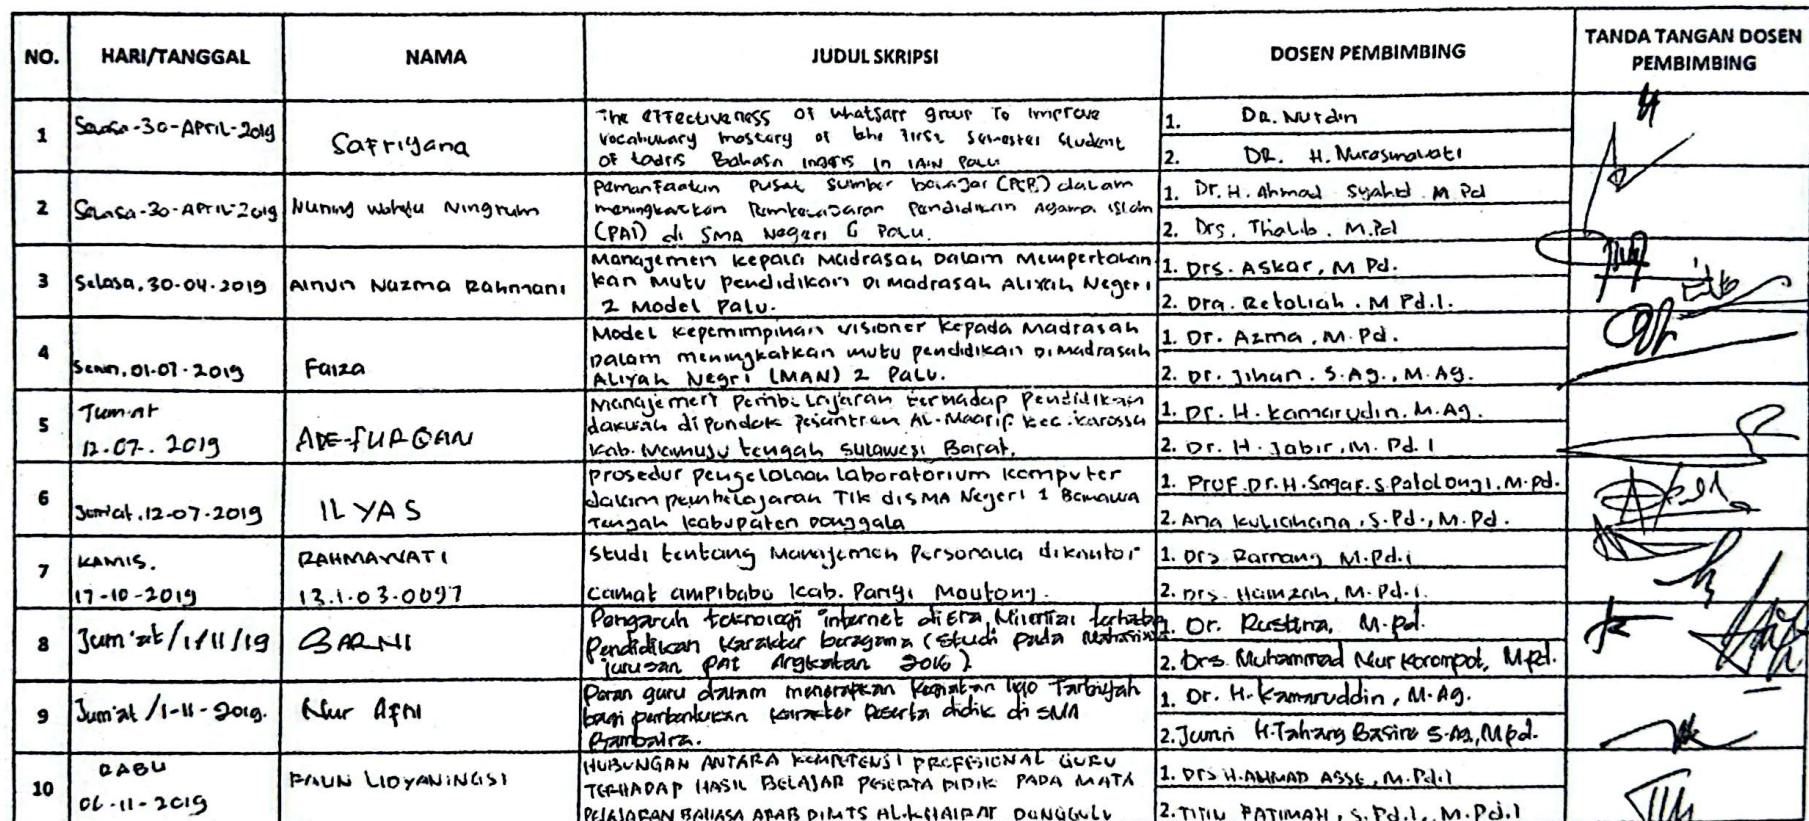 NO.
HARI/TANGGAL
NAMA
JUDUL SKRIPSI
DOSEN PEMBIMBING
TANDA TANGAN DOSEN
PEMBIMBING
1
Selasa-30-APRIL-2019
Safriyana
The effectiveness of whatsapp group To improve
vocabulary mastery of the first semester student
of tadris Bahasa inggris in IAIN Palu
1. DR. Nurdin
2. DR. H. Nurasmawati
2
Selasa-30-APRIL-2019
Nuning Wahyu Ningrum
Pemanfaatan Pusat Sumber belajar (PSB) dalam
meningkatkan Pembelajaran Pendidikan Agama islam
(PAI) di SMA Negeri 6 Palu.
1. Dr. H. Ahmad Syahid. M Pd
2. Drs. Thalib. M.Pd
3
Selasa, 30-04-2019
Ainun Nazma Rahmani
Manajemen Kepala Madrasah Dalam Mempertahan
kan Mutu pendidikan Di Madrasah Aliyah Negeri
2 Model Palu.
1. Drs. Askar, M Pd.
2. Dra. Retoliah. M Pd.I.
4
Senin, 01-07-2019
Faiza
Model Kepemimpinan visioner Kepada Madrasah
Dalam meningkatkan mutu pendidikan Di Madrasah
Aliyah Negri (MAN) 2 Palu.
1. Dr. Azma, M.Pd.
2. Dr. Jihan. S.Ag., M.Ag.
5
Jum'at
12.07. 2019
ADE-FURQAN
Manajemen Pembelajaran terhadap Pendidikan
dakwah di pondok pesantren AL-Maarif kec. karossa
Kab. Mamuju tengah Sulawesi Barat.
1. Dr. H. Kamarudin. M.Ag.
2. Dr. H. Jabir, M. Pd. I
6
Jum'at, 12-07-2019
ILYAS
prosedur pengelolaan laboratorium komputer
dalam pembelajaran TIK di SMA Negeri 1 Banawa
Tengah Kabupaten Donggala
1. Prof. Dr. H. Sagaf. S. Patolongi, M.pd.
2. Ana Kuliahana, S.Pd., M.Pd.
7
KAMIS.
17-10-2019
RAHMAWATI
13.1.03.0097
Studi tentang Manajemen Personalia dikantor
camat ampibabo Kab. Parigi Moutong.
1. Drs Ramang M.Pd.i
2. Drs. Hamzah, M.Pd.I.
8
Jum'at/1/11/19
SARNI
Pengaruh teknologi internet di Era Milenial terhadap
Pendidikan Karakter beragama (Studi pada Mahasiswa
jurusan PAI Angkatan 2016)
1. Dr. Rustina, M.pd.
2. Drs. Muhammad Nur Korompot, M.pd.
9
Jum'at /1-11-2019.
Nur Afni
Peran guru dalam menerapkan Kegiatan liqo Tarbiyah
bagi pembentukan karakter Peserta didik di SMA
Bambaira.
1. Dr. H. Kamaruddin, M.Ag.
2. Jumri H. Tahang Basire S.Ag, M.pd.
10
RABU
06-11-2019
LIDYANINGSI
HUBUNGAN ANTARA KOMPETENSI PROFESIONAL GURU
TERHADAP HASIL BELAJAR PESERTA DIDIK PADA MATA
PELAJARAN BAHASA ARAB DI MTS AL-KHAIRAT DONGGULU
1. Drs H. AHMAD ASSE, M.Pd.I
2. TITIN FATIMAH, S.Pd.I, M.Pd.I